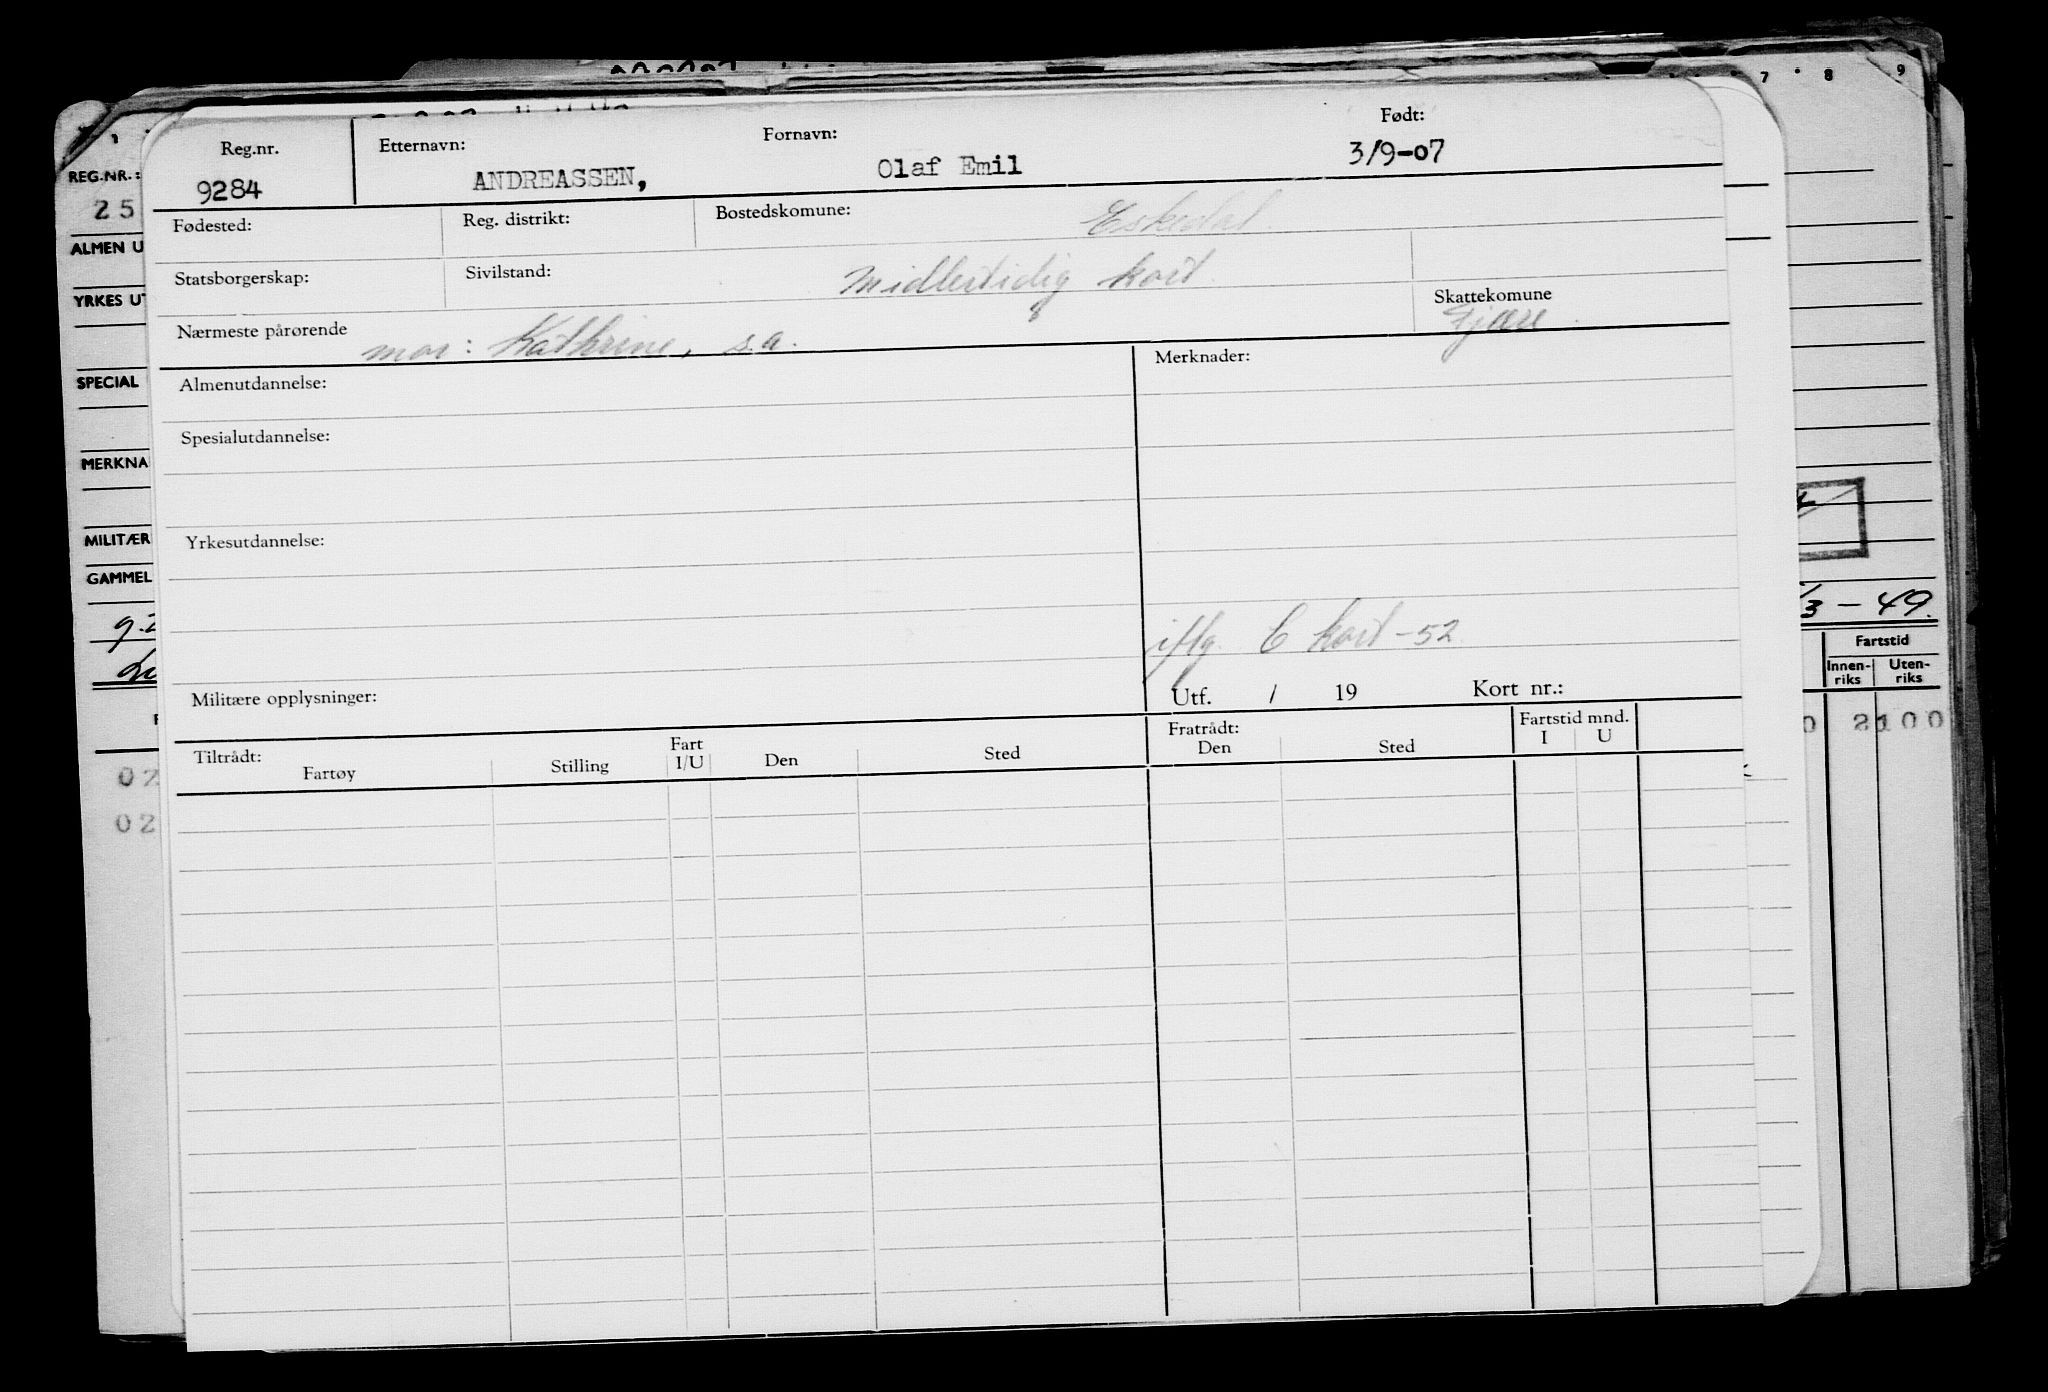 7 8 9
Reg.nr. Etternavn: Fornavn: Født:
9284 ANDREASSEN, Olaf Emil 3/9-07
REG.NR.:
25
Fødested: Reg. distrikt: Bostedskomune: Eskedal
ALMEN U
Statsborgerskap: Sivilstand: Midlertidig kort
YRKES UT
Skattekomune
Nærmeste pårørende mor: Kathrine, s.a. Fjære
SPECIAL
Almenutdannelse: Merknader:
Spesialutdannelse:
MERKNA
Yrkesutdannelse:
MILITÆR
GAMMEL
/3 - 49.
iflg. C kort -52
Militære opplysninger: Utf. / 19 Kort nr.:
Fartstid
Innen-riks Uten-riks
Tiltrådt: Fratrådt: Fartstid mnd.
Fartøy Stilling Fart I/U Den Sted Den Sted I U
0 2100
02
02